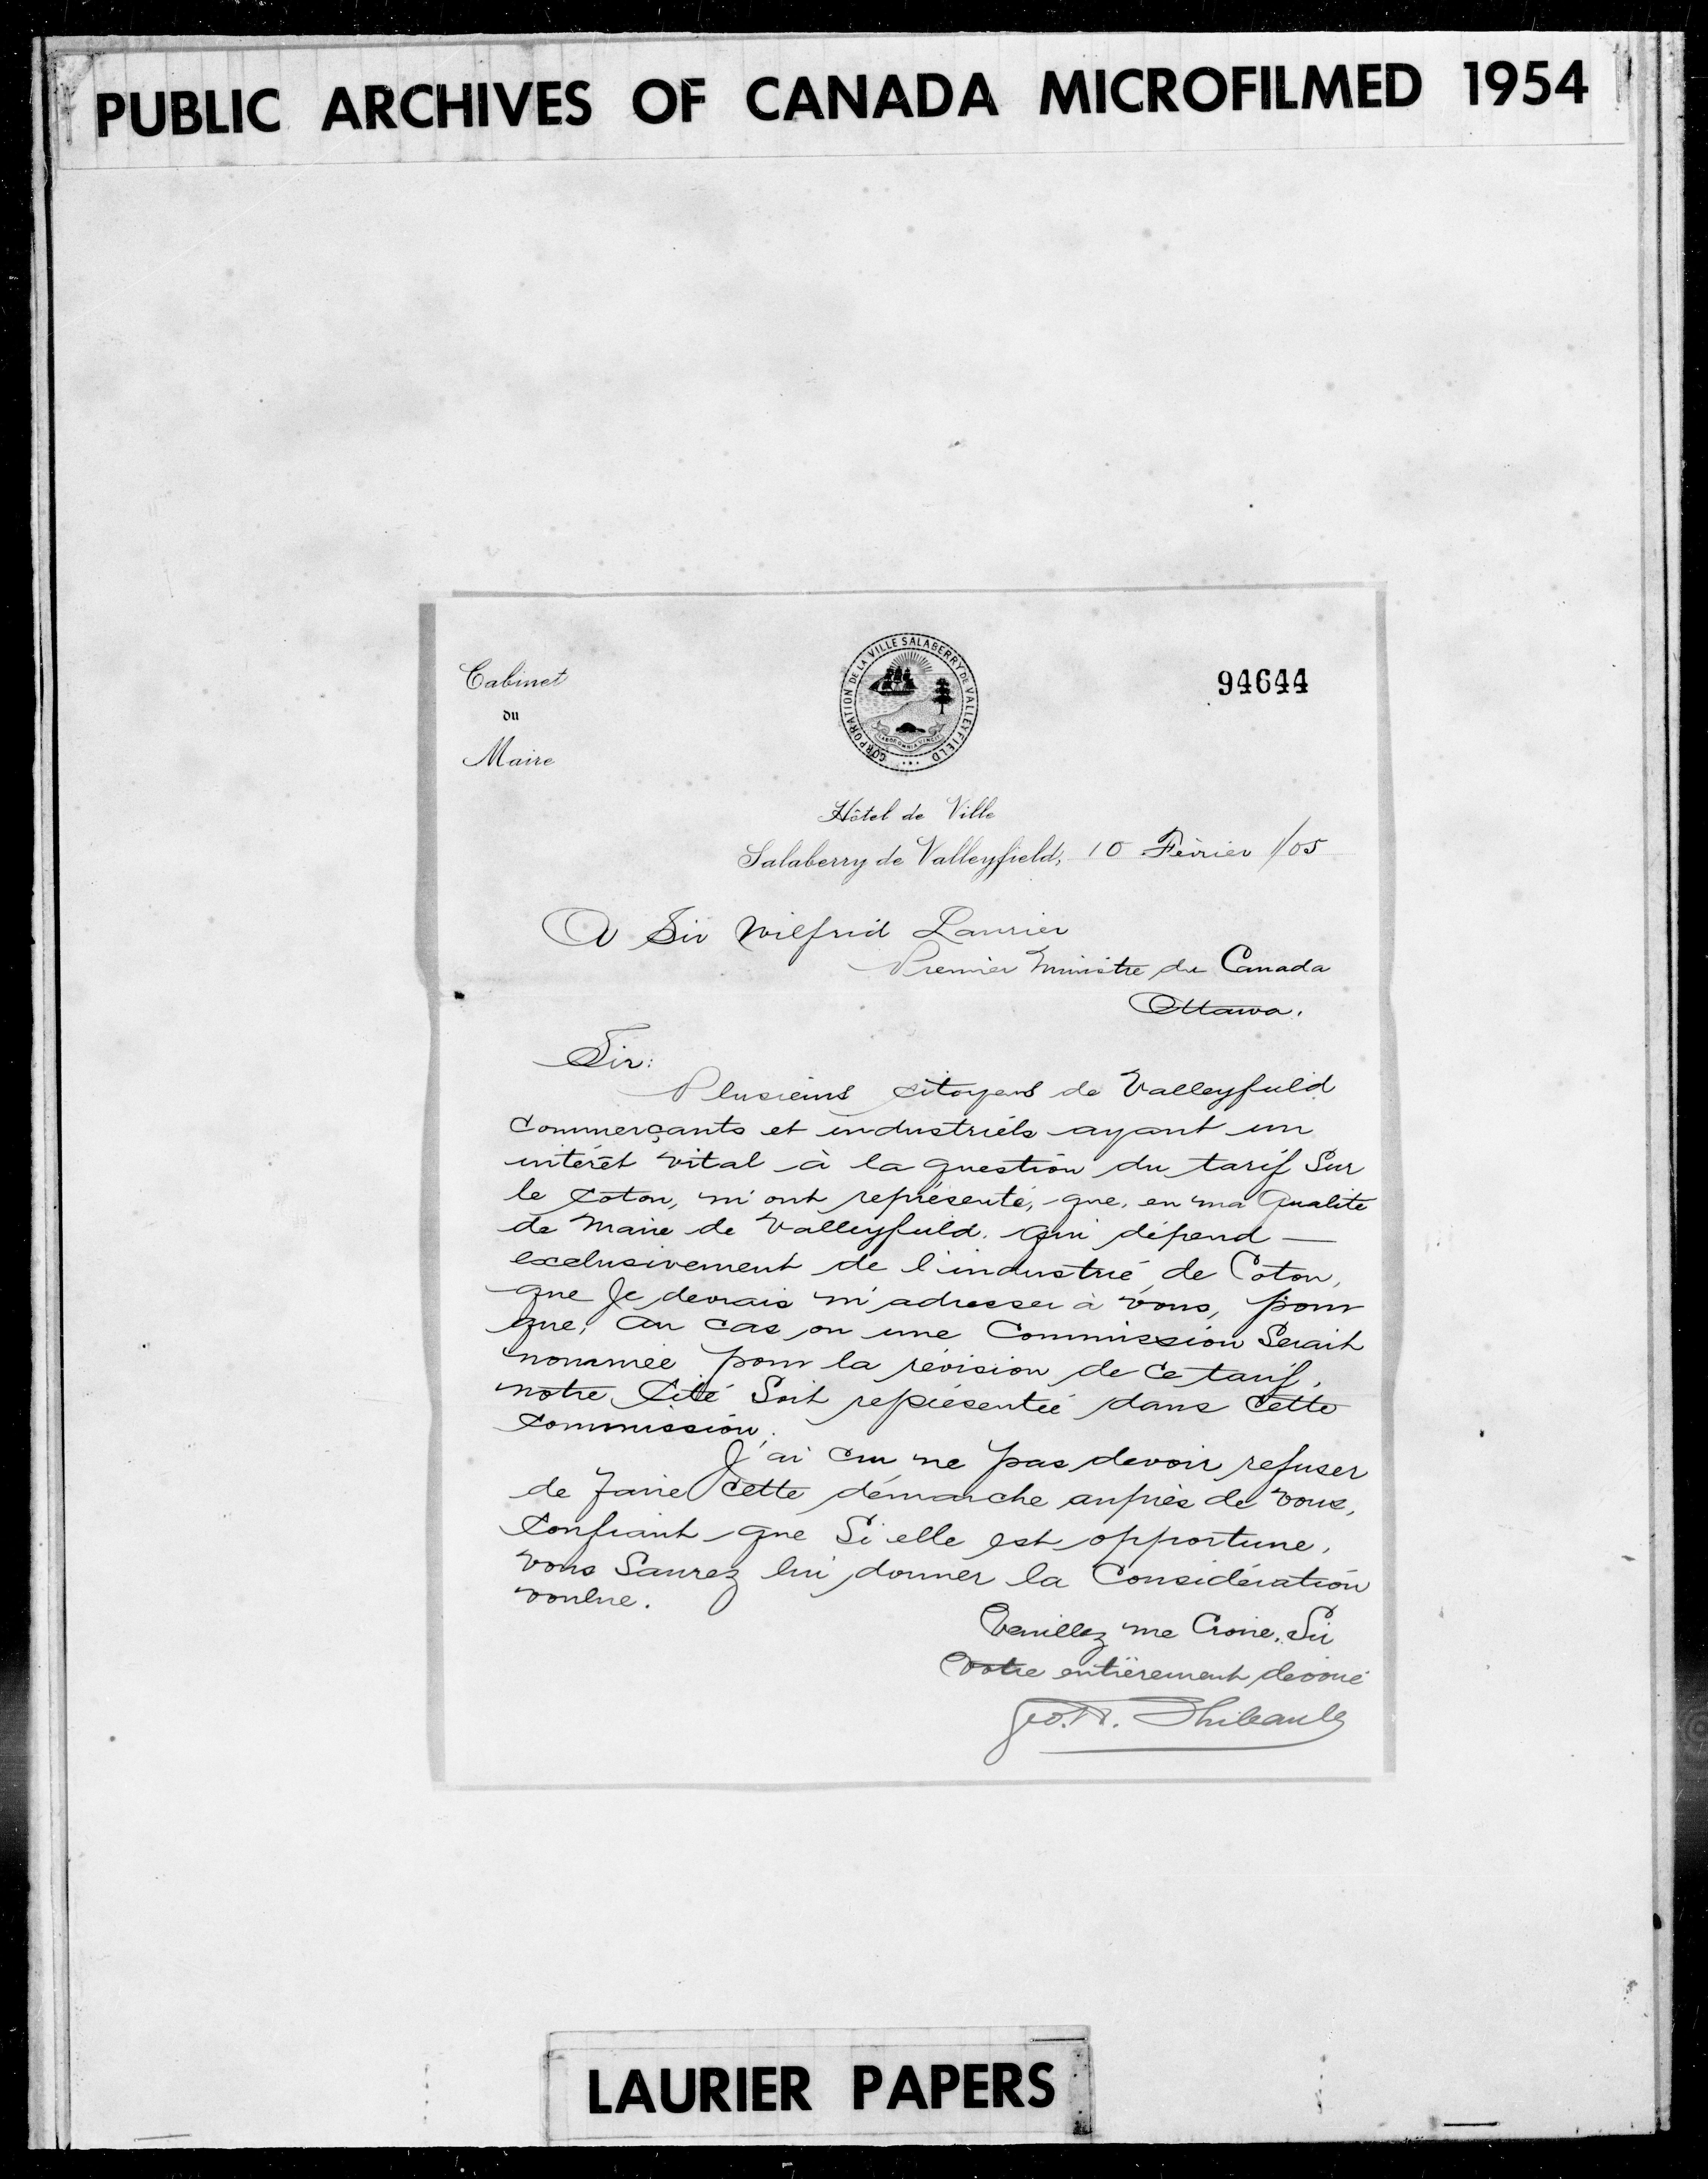 PUBLIC ARCHIVES OF CANADA MICROFILMED 1954
Cabinet
du
Maire
CORPORATION DE LA VILLE SALABERRY DE VALLEYFIELD
94644
Hôtel de Ville
Salaberry de Valleyfield, 10 Février 1/05
A Sir Wilfrid Laurier
Premier Ministre du Canada
Ottawa.
Sir:
Plusieurs citoyens de Valleyfield
commerçants et industriels ayant un
intérêt vital à la question du tarif sur
le coton, m'ont représenté, que, en ma qualité
de Maire de Valleyfield, qui dépend —
exclusivement de l'industrie de Coton,
que je devrais m'adresser à vous, pour
que, au cas ou une Commission serait
nommée pour la révision de ce tarif,
notre Cité soit représentée dans cette
Commission.
J'ai cru ne pas devoir refuser
de faire cette démarche auprès de vous,
confiant que si elle est opportune,
vous saurez lui donner la Considération
voulue.
Veuillez me Croire, Sir
Votre entièrement dévoué
Geo. Thibault
LAURIER PAPERS